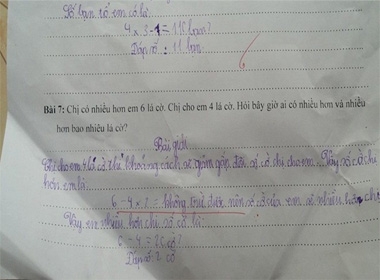 Số bạn tổ em có là:
4 x 3 - 1 = 11 (bạn)
Đáp số: 11 bạn
Bài 7: Chị có nhiều hơn em 6 lá cờ. Chị cho em 4 lá cờ. Hỏi bây giờ ai có nhiều hơn và nhiều
hơn bao nhiêu lá cờ?
Bài giải
Chị cho em 4 lá cờ thì khoảng cách sẽ giảm gấp đôi số cờ chị cho em. Vậy số cờ chị
hơn em là:
6 - 4 x 2 = không trừ được nên số cờ của em sẽ nhiều hơn chị
Vậy em nhiều hơn chị số cờ là:
6 - 4 = 2 (cờ)
Đáp số 2 cờ